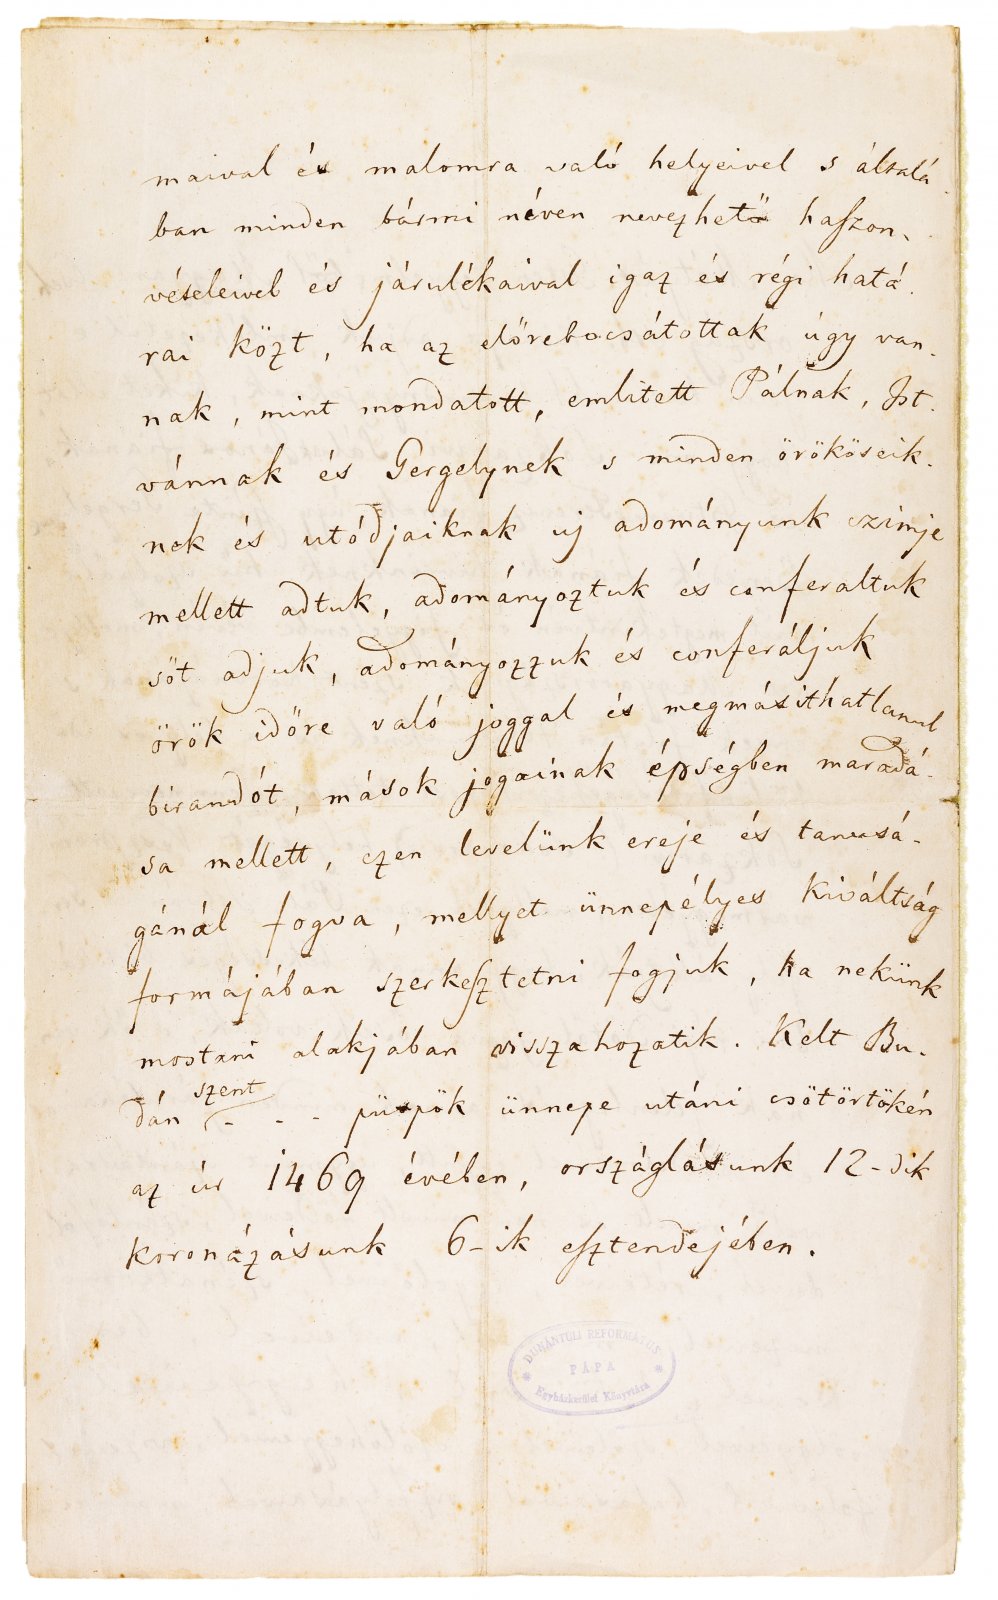 maival és malomra való helyeivel s általá-
ban minden bármi néven nevezhető haſzon-
vételeivel és járulékaival igaz és régi hatá-
rai közt, ha az előrebocsátottak úgy van-
nak, mint mondatott, emlitett Pálnak, Ist-
vánnak és Gergelynek s minden örököseik-
nek és utódjaiknak uj adományunk czimje
mellett adtuk, adományoztuk és conferaltuk
sőt adjuk, adományozzuk és conferáljuk
örök időre való joggal és megmásithatlanul
birandót, mások jogainak épségben maradá-
sa mellett, ezen levelünk ereje és tanusá-
gánál fogva, mellyet ünnepélyes kiváltság
formájában szerkeſztetni fogjuk, ha nekünk
mostani alakjában visszahozatik. Kelt Bu-
dán szent - - püspök ünnepe utáni csötörtökén
az úr 1469 évében, országlásunk 12-dik
koronázásunk 6-ik eſztendejében.
DUNÁNTULI REFORMÁTUS
PÁPA
Egyházkerület Könyvtára